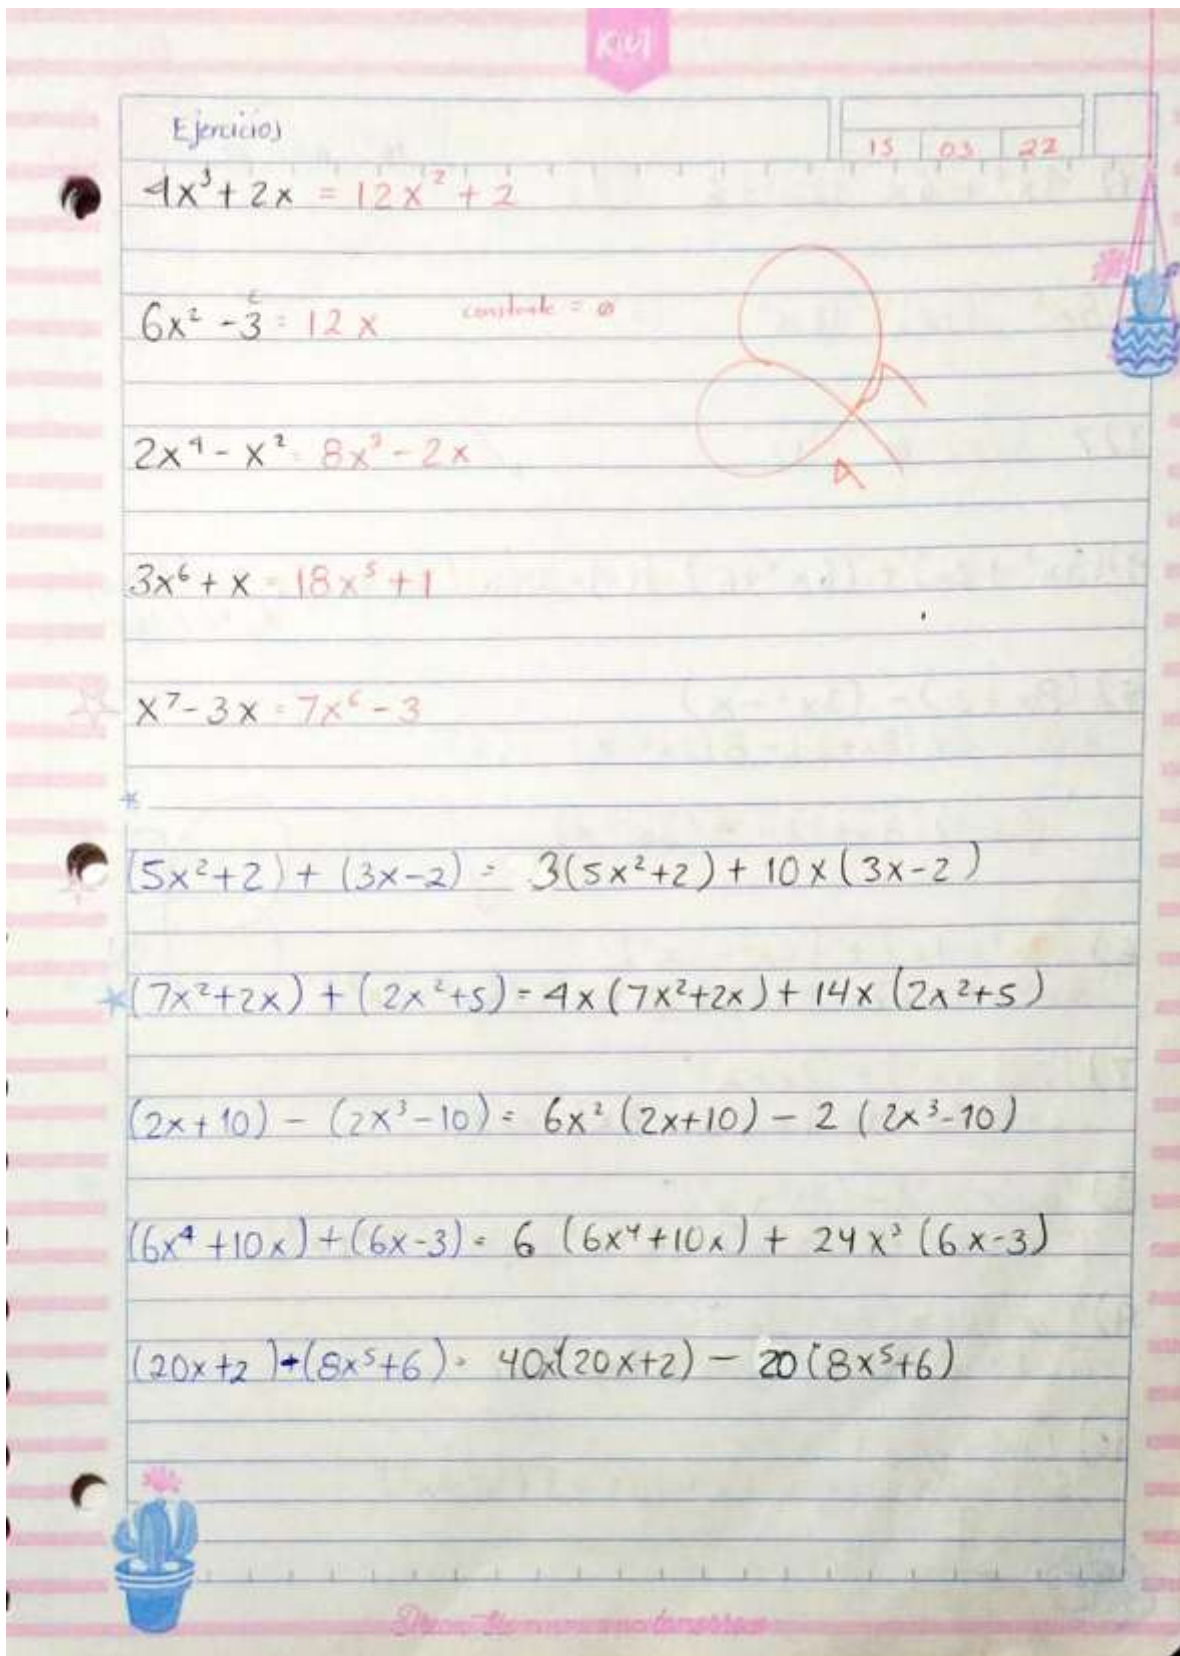 KiUi
Ejercicios
15 03 22
4x³ + 2x = 12x² + 2
6x² - 3 = 12x constante = ø
2x⁴ - x² = 8x³ - 2x
3x⁶ + x = 18x⁵ + 1
x⁷ - 3x = 7x⁶ - 3
(5x²+2) + (3x-2) = 3(5x²+2) + 10x(3x-2)
(7x²+2x) + (2x²+5) = 4x(7x²+2x) + 14x(2x²+5)
(2x+10) - (2x³-10) = 6x²(2x+10) - 2(2x³-10)
(6x⁴+10x) + (6x-3) = 6(6x⁴+10x) + 24x³(6x-3)
(20x+2) + (8x⁵+6) = 40x⁴(20x+2) - 20(8x⁵+6)